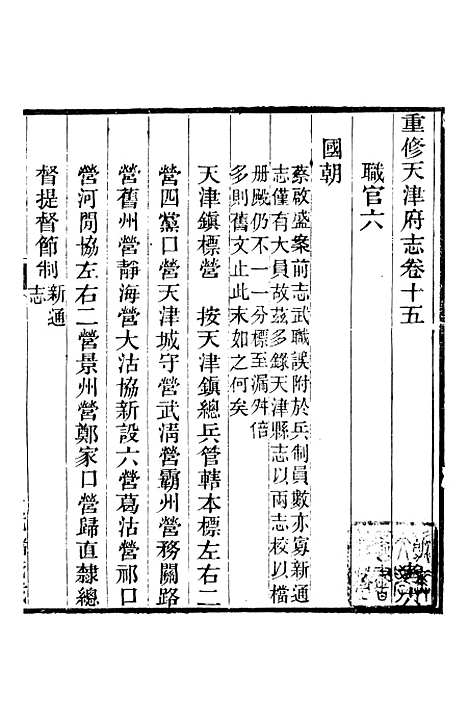 重修天津府志卷十五
職官六
國朝
蔡啟盛案前志武職誤附於兵制員數亦寡新通
志僅有大員故茲多錄天津縣志以兩志校以檔
册殿仍不一一分標至漏舛倍
多則舊文止此末如之何矣
天津鎮標營　按天津鎮總兵管轄本標左右二
營四黨口營天津城守營武清營霸州營務關路
營舊州營靜海營大沽協新設六營葛沽營祁口
營河間協左右二營景州營鄭家口營歸直隸總
督提督節制新通
志